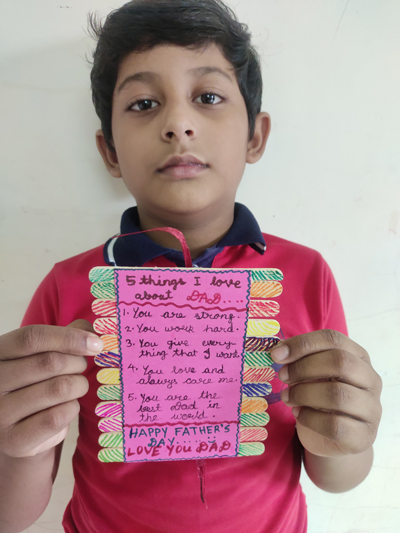 5 things I love
about DAD....
1. You are strong.
2. You work hard.
3. You give every
thing that I want
4. You love and
always care me.
5. You are the
best Dad in
the world.
HAPPY FATHER'S
DAY......
LOVE YOU DAD